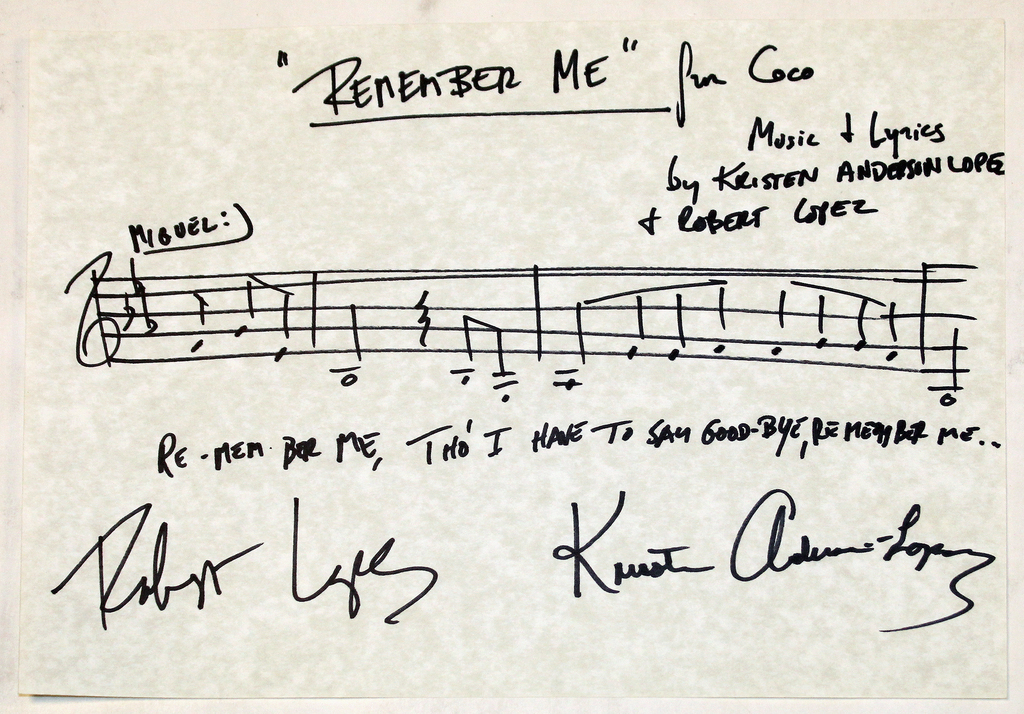 "REMEMBER ME" from Coco
Music + Lyrics
by KRISTEN ANDERSON LOPEZ
+ ROBERT LOPEZ
MIGUEL:)
RE-MEM-BER ME, THO' I HAVE TO SAY GOOD-BYE, REMEMBER ME...
Robert Lopez Kristen Anderson-Lopez